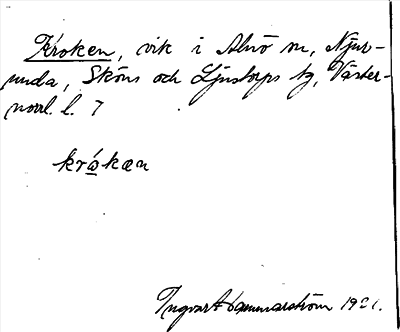 Kroken, vik i Alnö sn, Njur-
unda, Sköns och Ljustorps tg, Väster-
norrl. l. 7
krókæn
Ingvar Hammarström 1921.